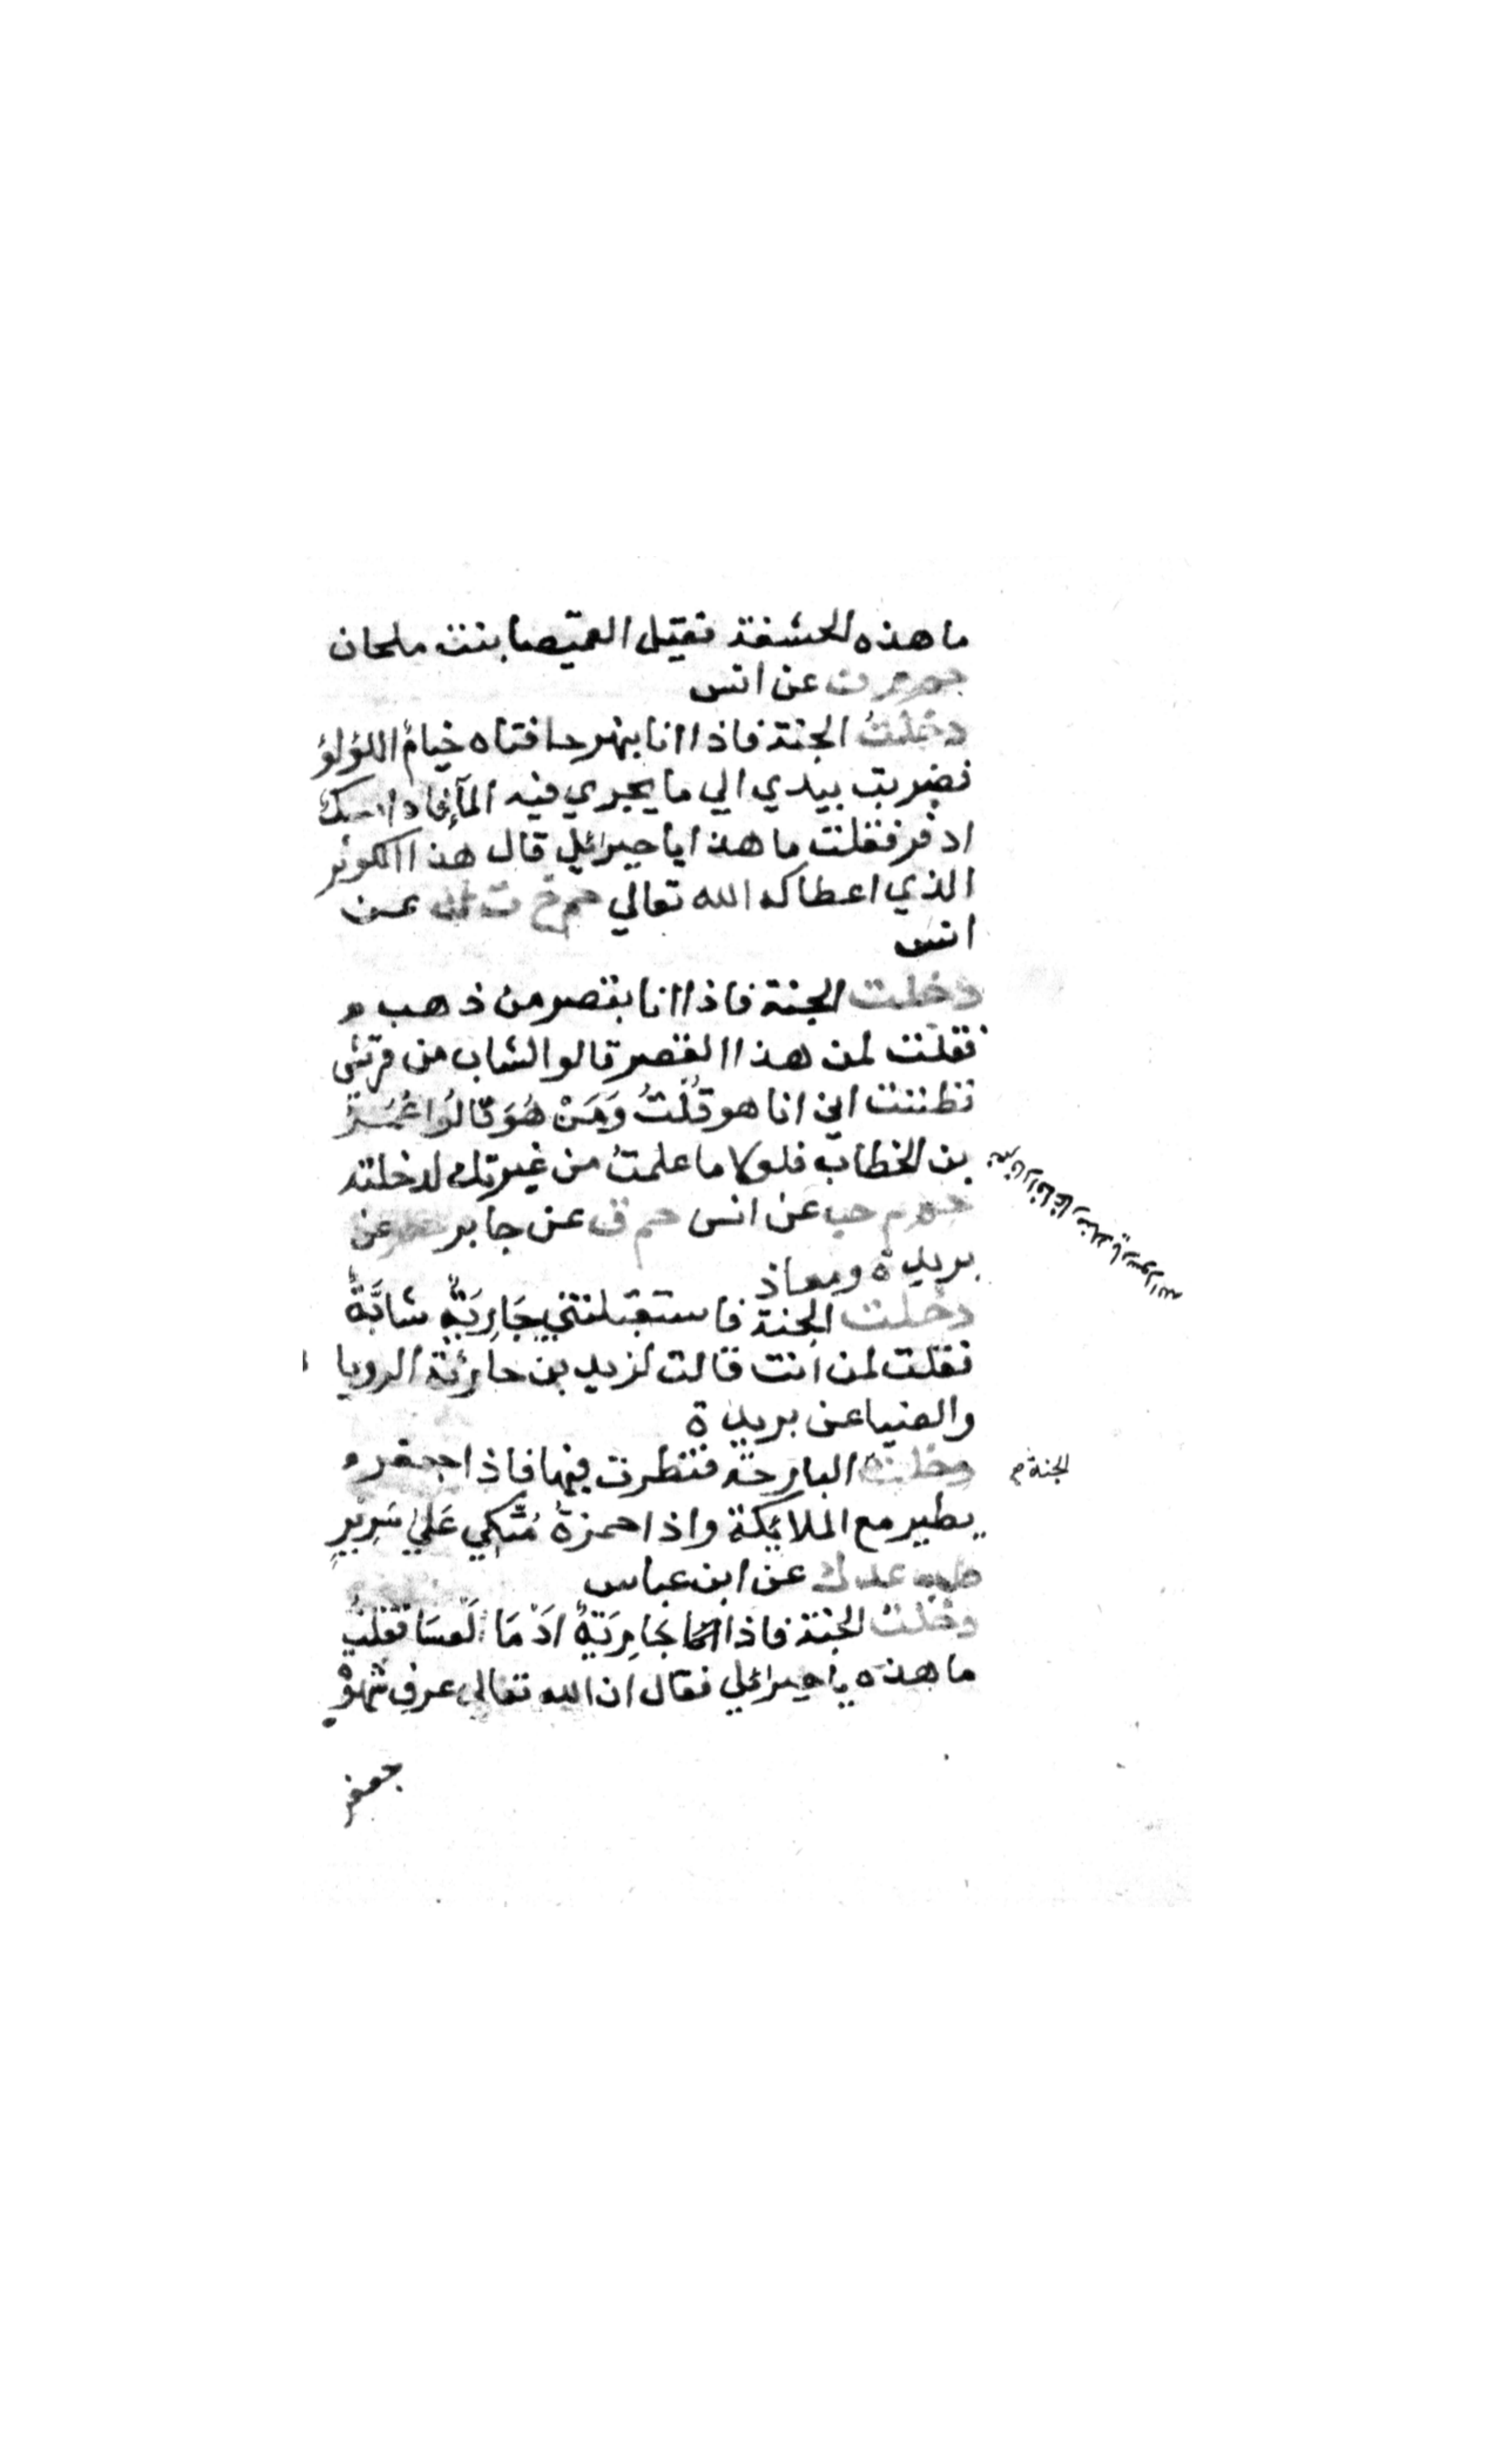 ما هذه الخشفة فقيل الغميصا بنت ملحان
حم م ن عن انس
دخلتُ الجنة فاذا انا بنهر حافتاه خيامُ اللؤلؤ
فضربت بيدي الي ما يجري فيه المآ فاذا مسك
اذفر فقلت ما هذا يا جبرائيل قال هذا الكوثر
الذي اعطاكه الله تعالي حم خ ت ن عن
انس
دخلت الجنة فاذا انا بقصر من ذهب
فقلت لمن هذا القصر قالوا لشاب من قريش
فظننت اني انا هو قُلْتُ وَمَنْ هُوَ قالُوا عُمَرُ
بن الخطاب فلولا ما علمتُ من غيرتك لدخلته
حم ت حب عن انس حم ق عن جابر حم عن
بريدة ومعاذ
دخلت الجنة فاستقبلتني جَارِيَةٌ شابَّةٌ
فقلت لمن انت قالت لزيد بن حارثة الرويا
والضيا عن بريدة
دخلت البارحة فنظرت فيها فاذا جعفر
الجنة م
يطير مع الملائكة واذا حمزةُ مُتَّكِي عَليٰ سَرِيرٍ
طب عد ك عن ابن عباس
دخلت الجنة فاذا جَارِيَةٌ ادْمَا لَعسَا فقلت
ما هذه يا جبرائيل فقال ان الله تعالي عرف شهوْ
جعفر